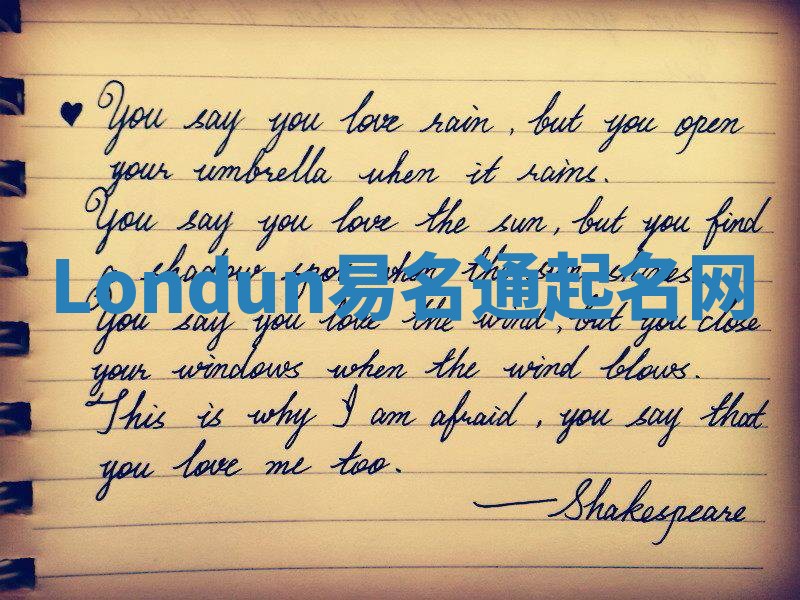 ♥ You say you love rain, but you open
your umbrella when it rains.
You say you love the sun, but you find
a shadow spot when the sun shines.
Londun易名通起名网
You say you love the wind, but you close
your windows when the wind blows.
This is why I am afraid, you say that
you love me too.
—Shakespeare